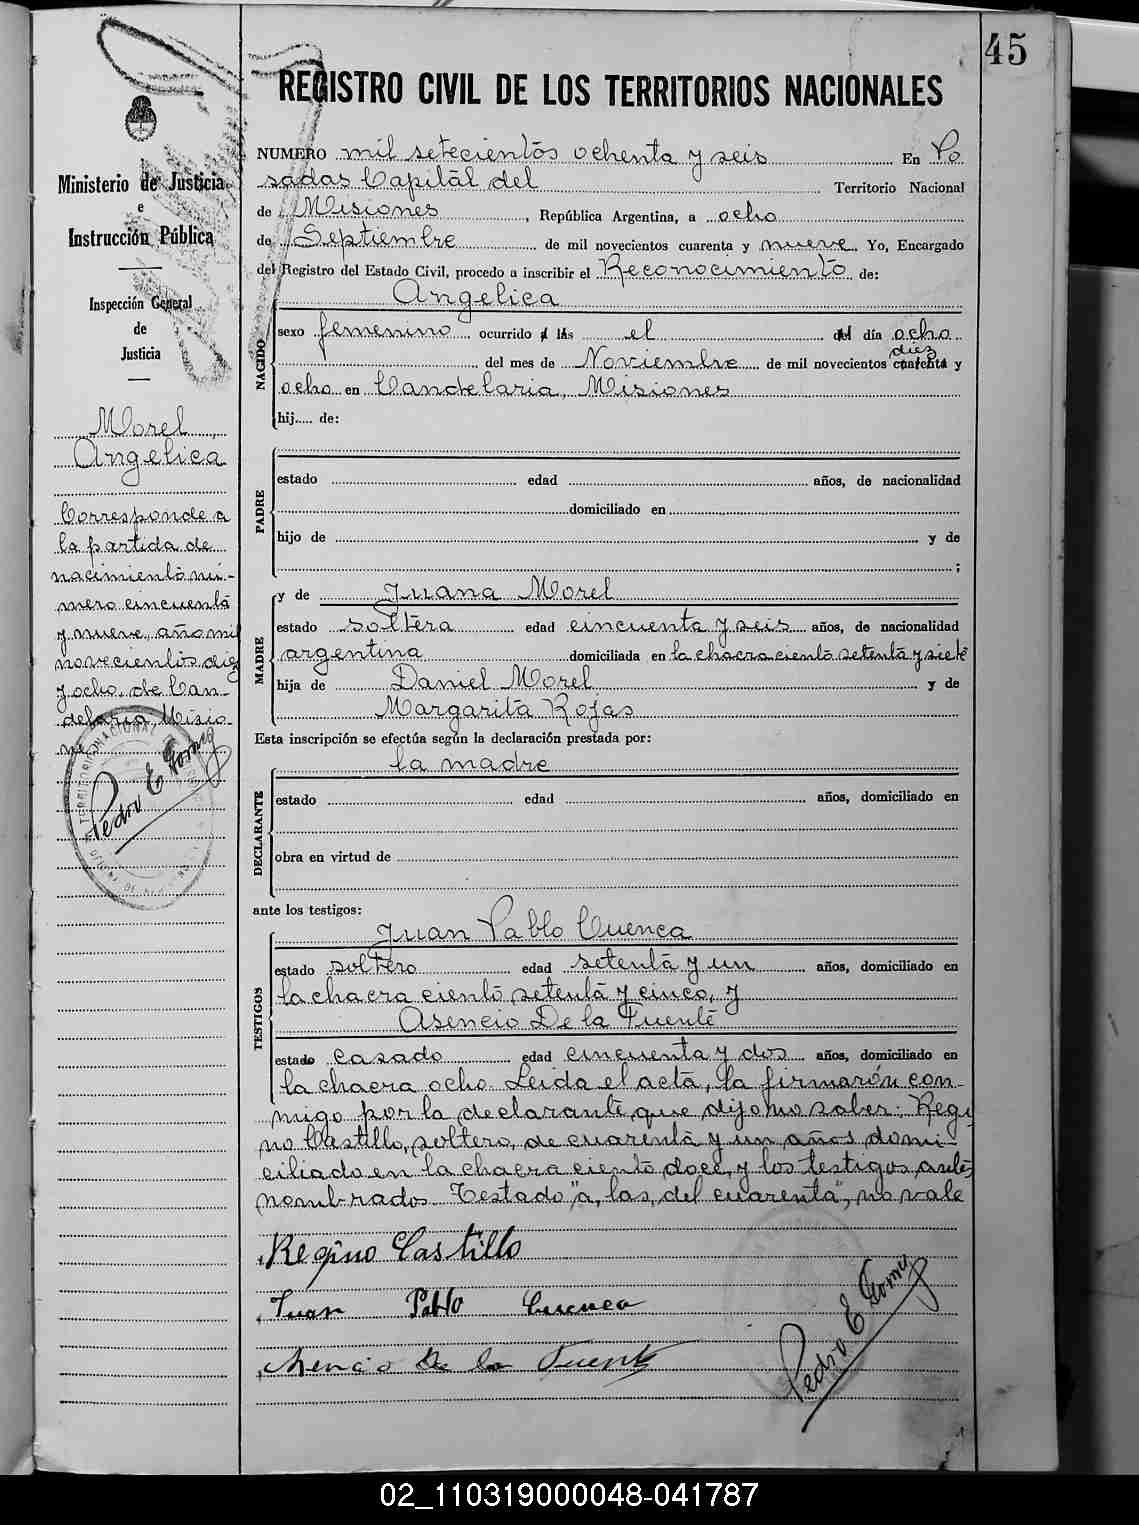 45
REGISTRO CIVIL DE LOS TERRITORIOS NACIONALES
Ministerio de Justicia
e
Instrucción Pública
Inspección General
de
Justicia
Morel
Angelica
Corresponde a
la partida de
nacimiento nú-
mero cincuenta
y nueve, año mil
novecientos diez
y ocho. de Can-
delaria, Misio-
nes
Pedro E Gomez
NUMERO mil setecientos ochenta y seis En Po
sadas Capital del Territorio Nacional
de Misiones, República Argentina, a ocho
de Septiembre de mil novecientos cuarenta y nueve. Yo, Encargado
del Registro del Estado Civil, procedo a inscribir el Reconocimiento de:
Angelica
NACIDO
sexo femenino ocurrido a las el del día ocho
del mes de Noviembre de mil novecientos cuarenta diez y
ocho en Candelaria, Misiones
hij..... de:
PADRE
estado edad años, de nacionalidad
domiciliado en
hijo de y de
;
MADRE
y de Juana Morel
estado soltera edad cincuenta y seis años, de nacionalidad
argentina domiciliada en la chacra ciento setenta y siete
hija de Daniel Morel y de
Margarita Rojas
Esta inscripción se efectúa según la declaración prestada por:
la madre
DECLARANTE
estado edad años, domiciliado en
obra en virtud de
ante los testigos:
Juan Pablo Cuenca
TESTIGOS
estado soltero edad setenta y un años, domiciliado en
la chacra ciento setenta y cinco, y
Asencio De la Fuente
estado casado edad cincuenta y dos años, domiciliado en
la chacra ocho. Leida el acta, la firmarón con-
migo por la declarante que dijo no saber: Regi
no Castillo, soltero, de cuarenta y un años domi-
ciliado en la chacra ciento doce, y los testigos ante
nombrados. Testado "a, las, del cuarenta", no vale
Regino Castillo
Juan Pablo Cuenca
Asencio De la Fuente
Pedro E Gomez
02_110319000048-041787